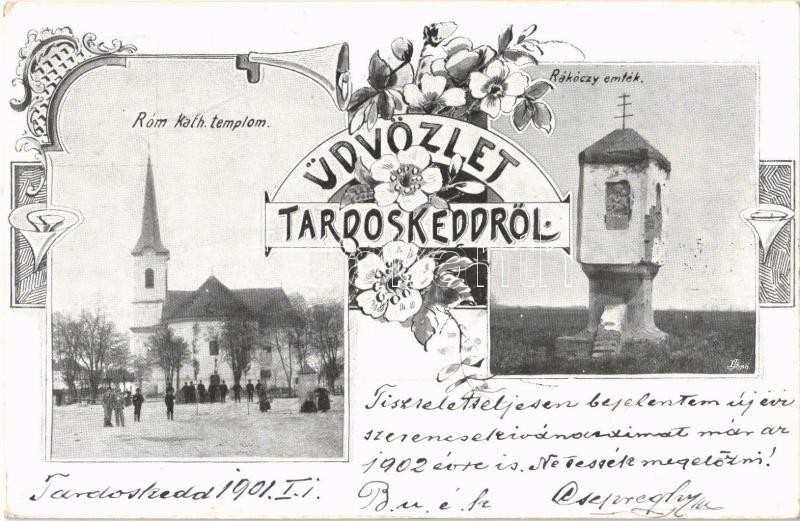 Róm. Kath. templom.
Rákóczy emlék.
ÜDVÖZLET
TARDOSKEDDRŐL.
Tiszteletteljesen bejelentem új évi
szerencsekivánataimat már az
1902 évre is. Ne tessék megelőzni!
Tardoskedd 1901. I. 1.
B. u. é. k. Csepreghy